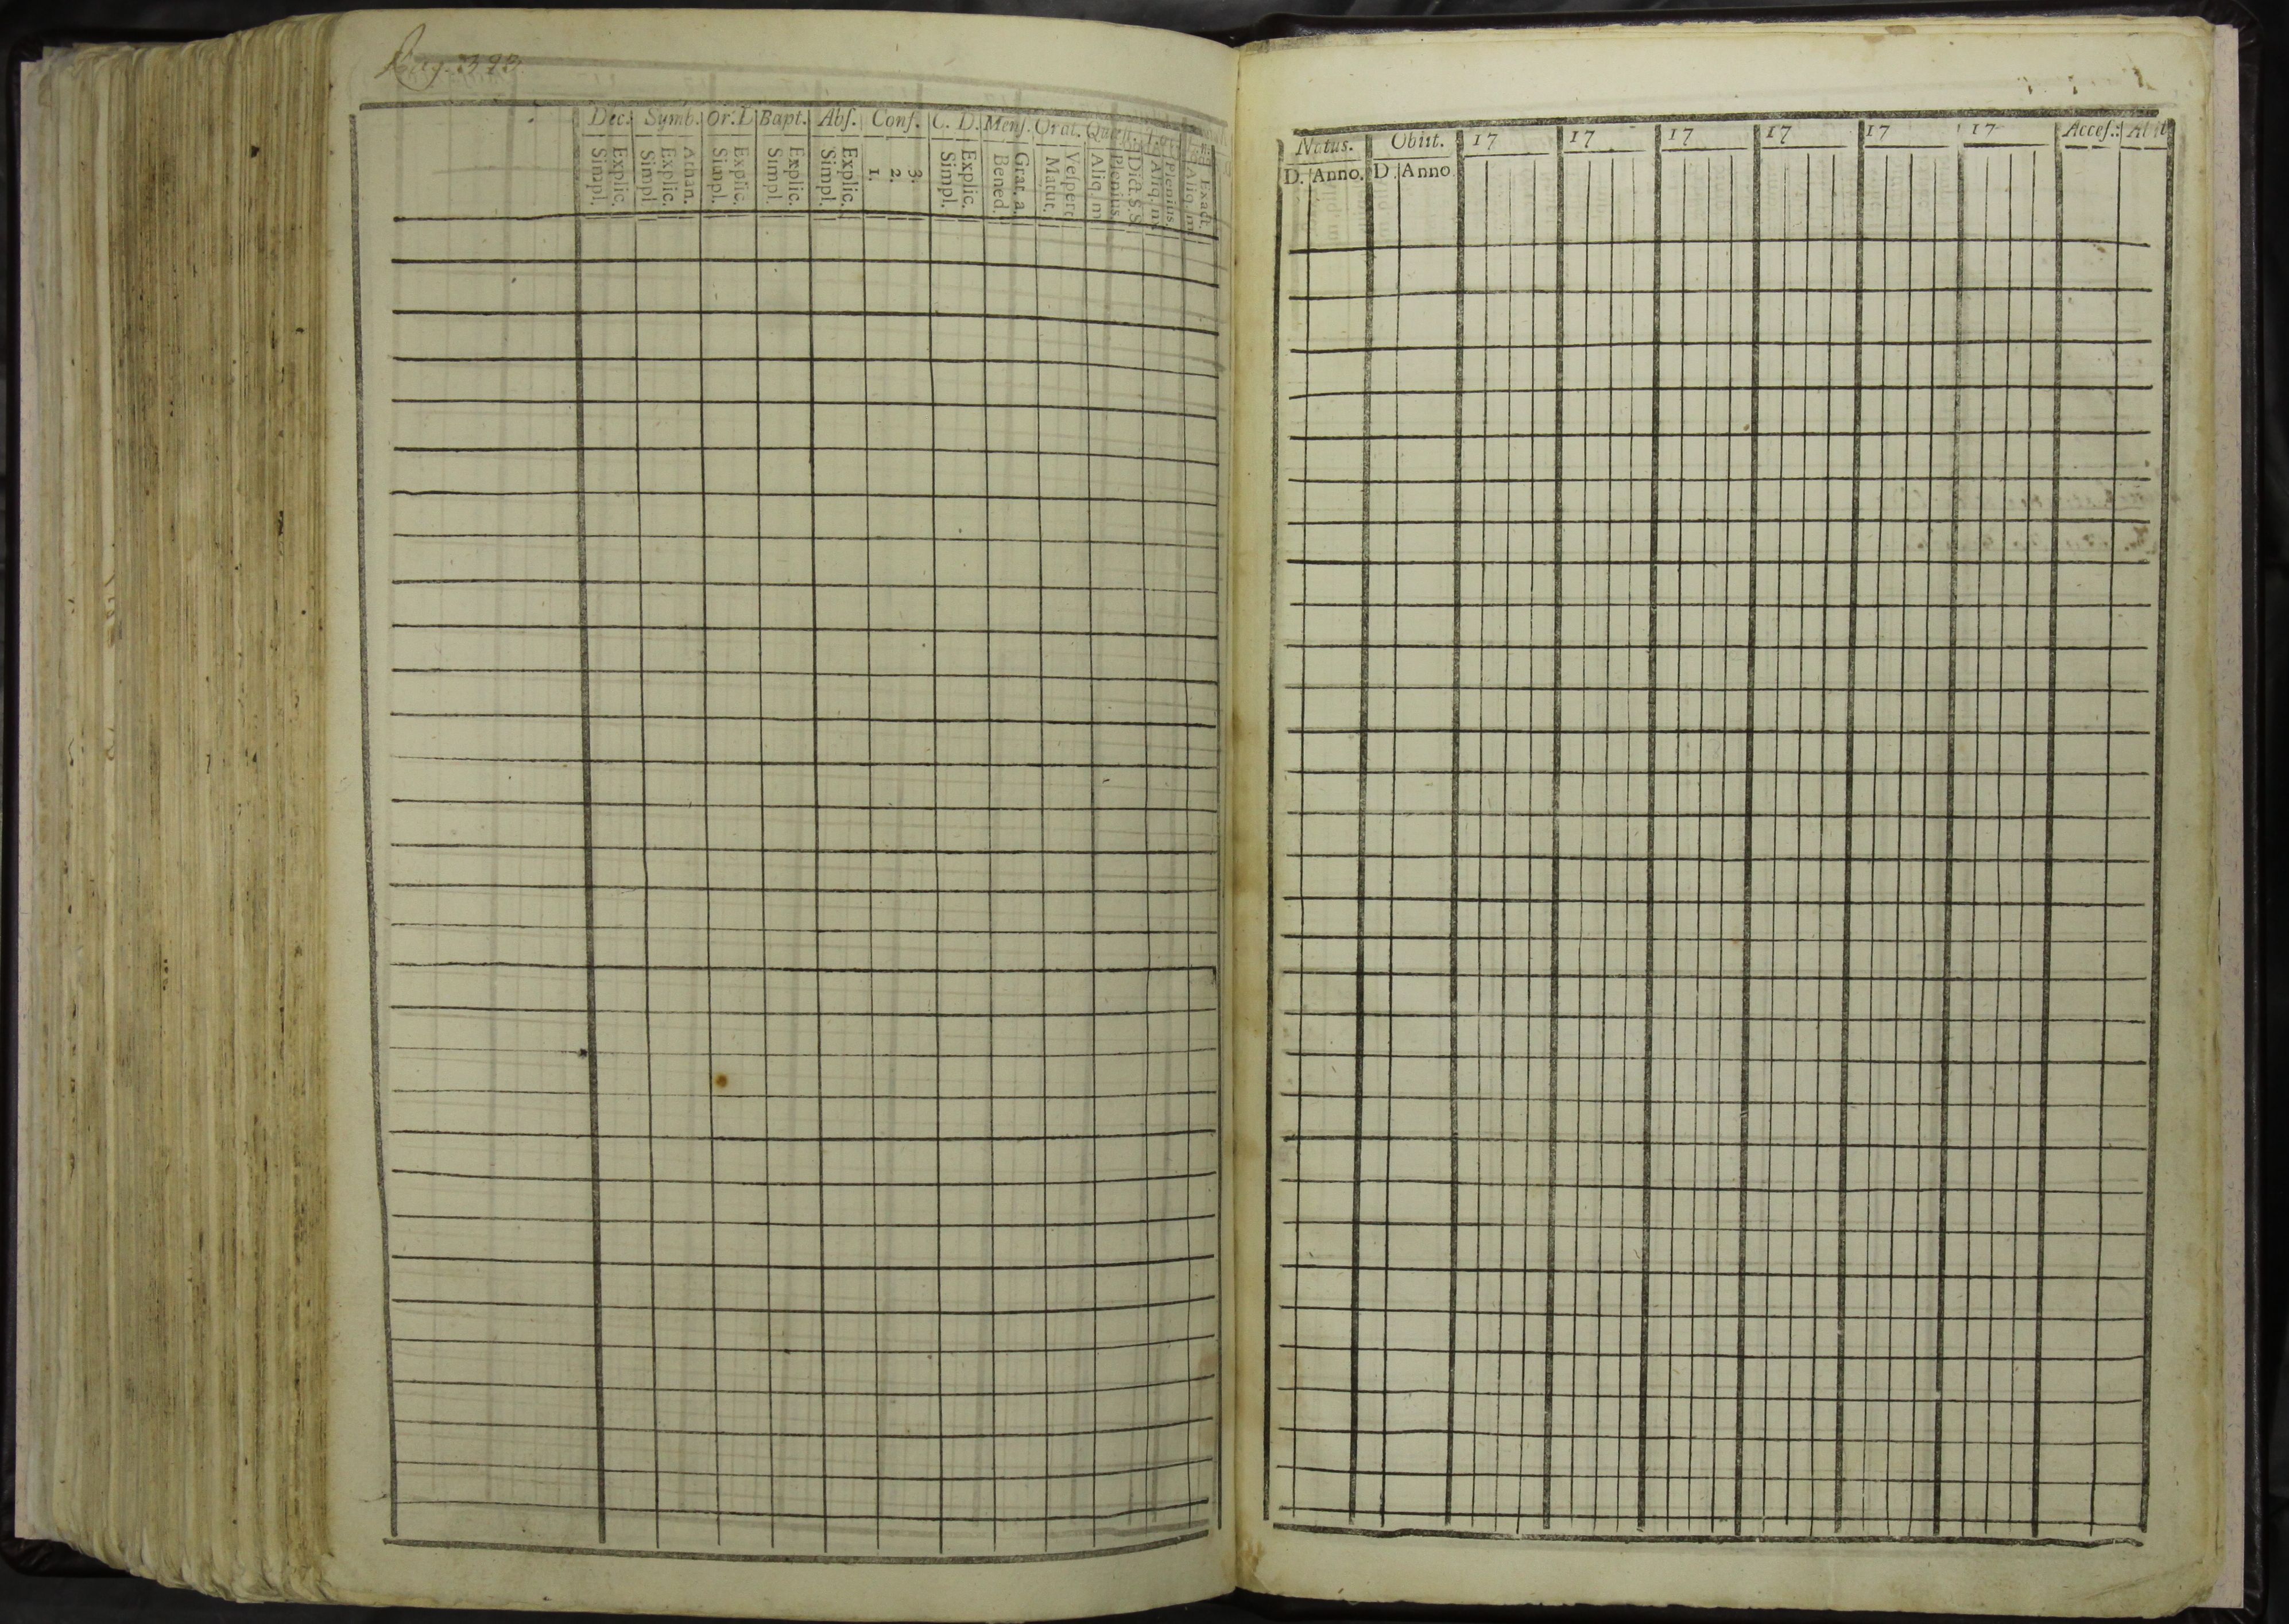 Pag. 393.
Dec. Symb. Or. D Bapt. Abſ. Conf. C. D. Menſ. Orat. Quæſt.
Simpl. Explic. Simpl. Explic. Athan. Simpl. Explic. Simpl. Explic. Simpl. Explic. 1. 2. 3. Simpl. Explic. Bened. Grat. a. Matut. Veſpert Aliq. m Plenius. Dict. S.S. Aliq. m Plenius. Aliq. m Exact.
Natus. Obiit. 17 17 17 17 17 17 Acceſ.: Abiit
D. Anno. D. Anno